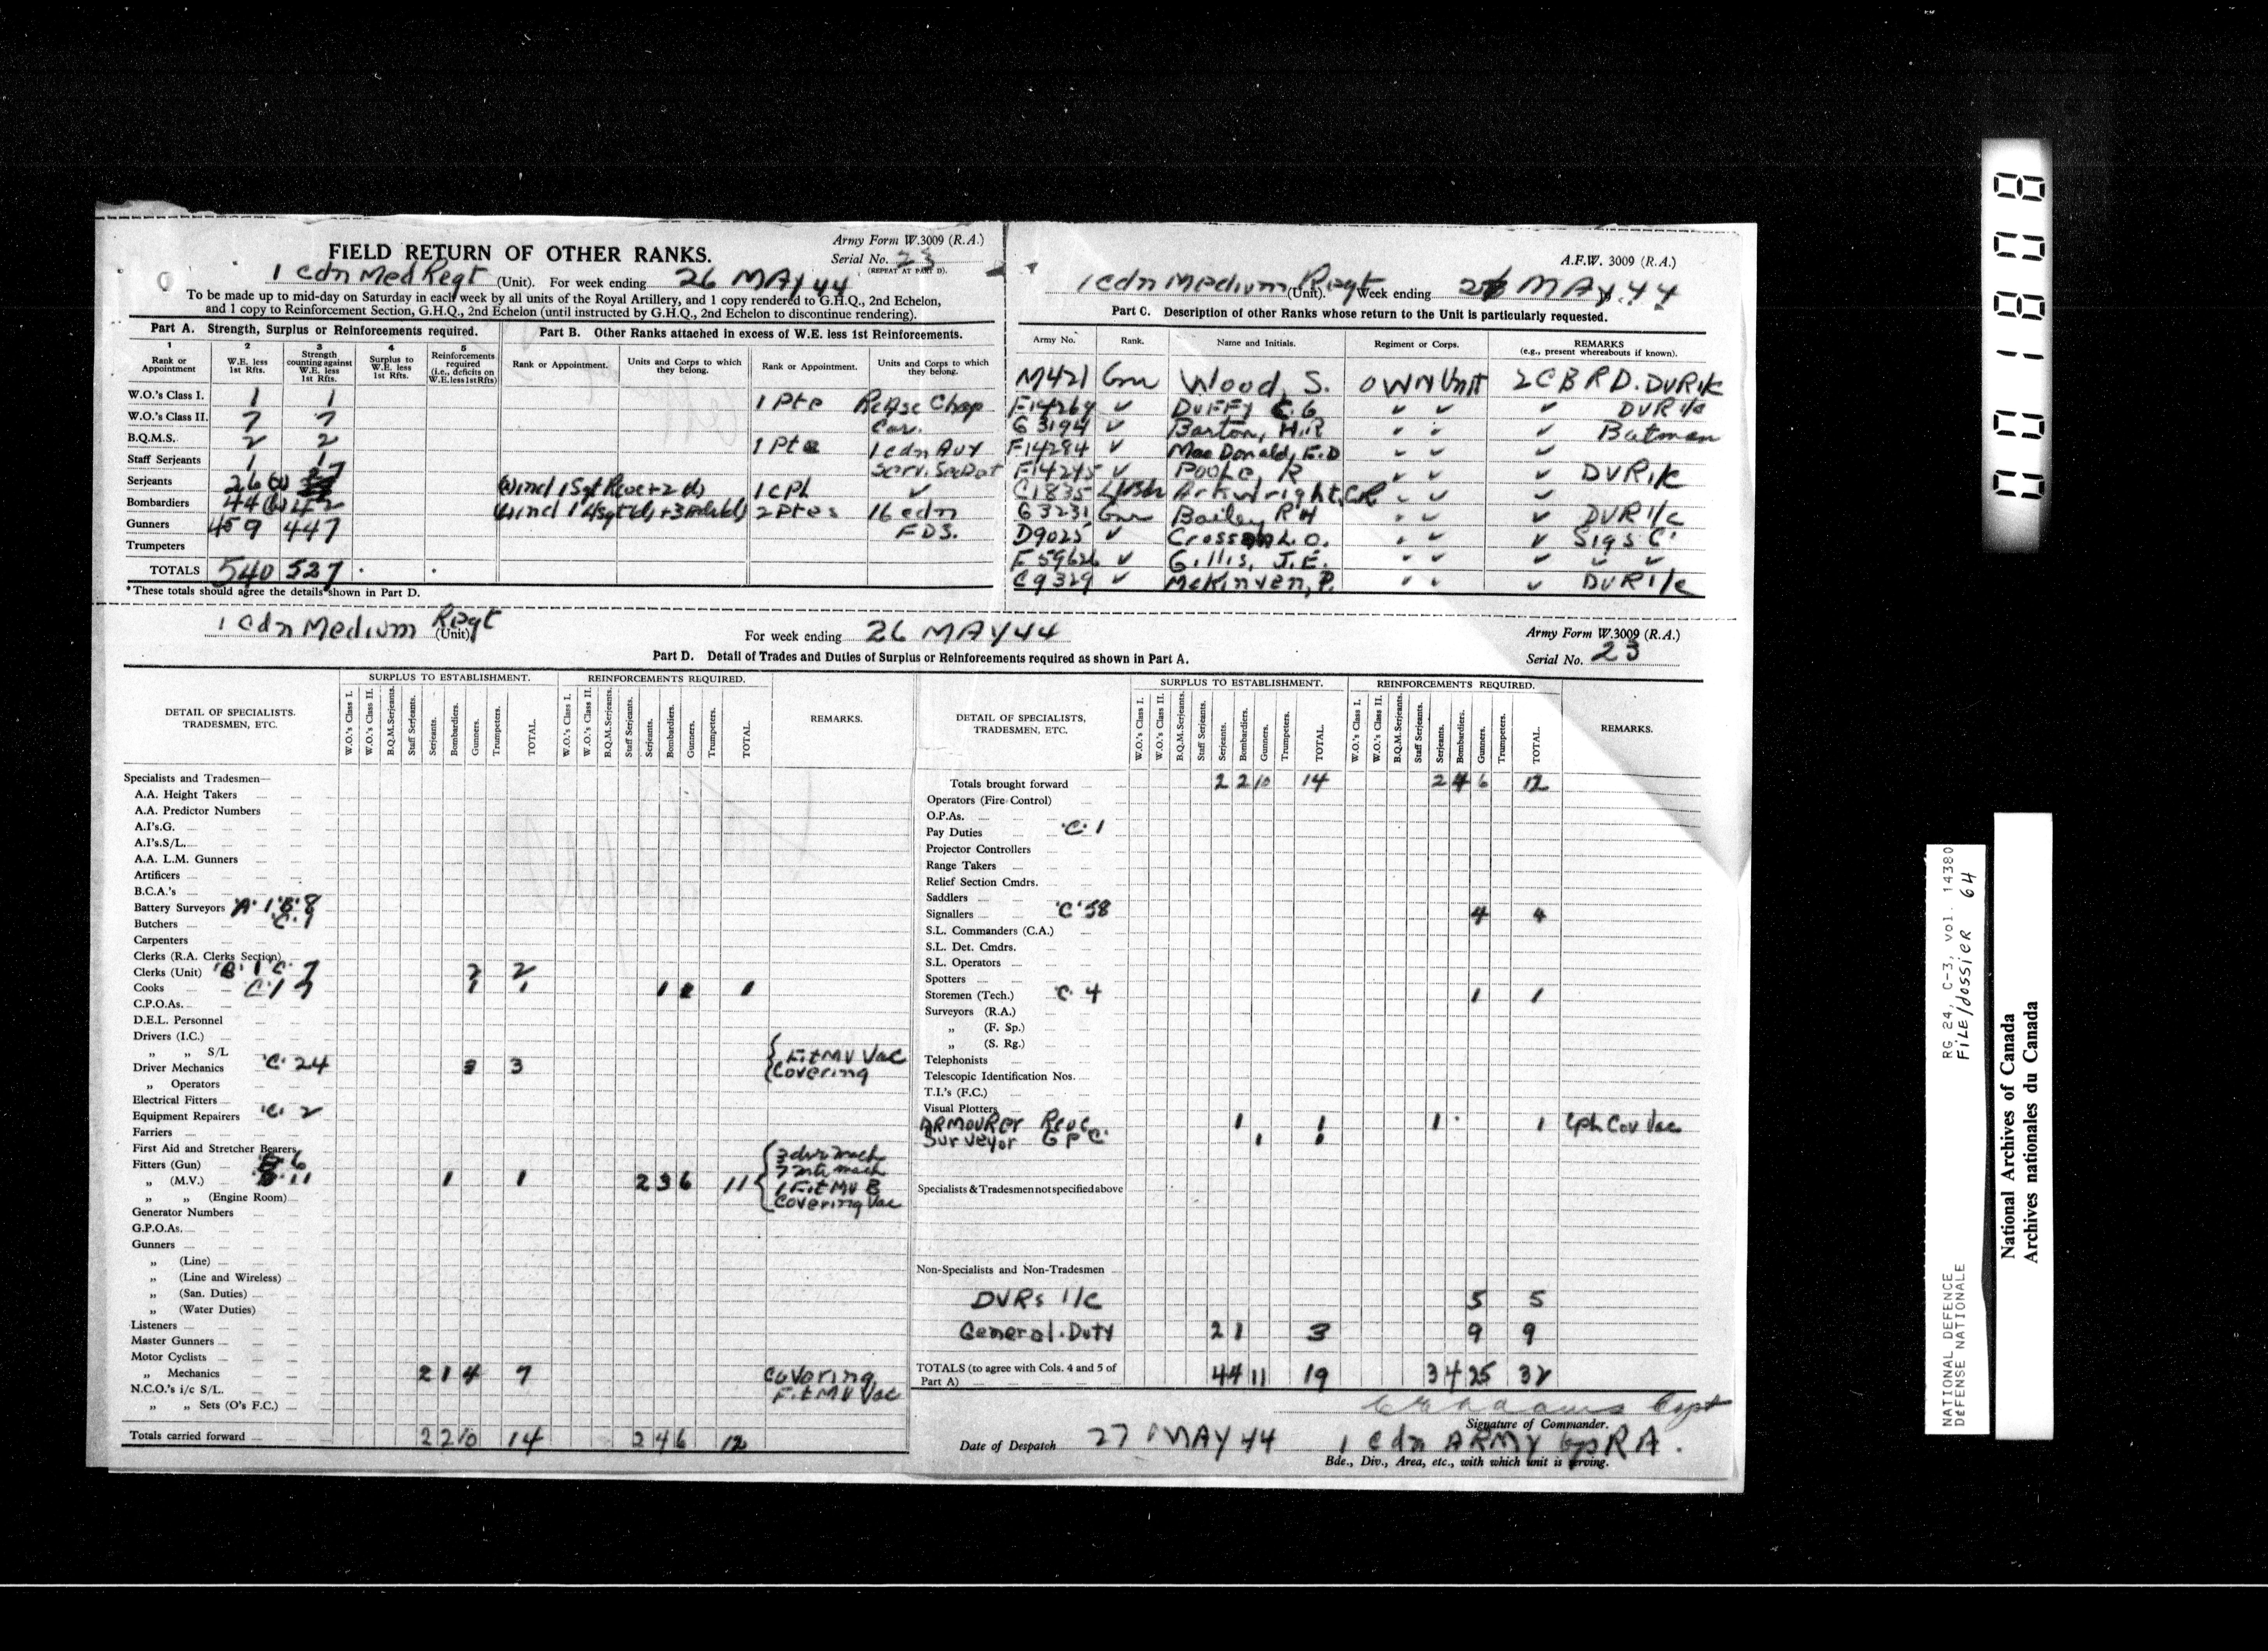 FIELD RETURN OF OTHER RANKS.
Army Form W.3009 (R.A.)
Serial No. 23
(REPEAT AT PART D).
1 Cdn Med Regt (Unit). For week ending 26 MAY 44
To be made up to mid-day on Saturday in each week by all units of the Royal Artillery, and 1 copy rendered to G.H.Q., 2nd Echelon,
and 1 copy to Reinforcement Section, G.H.Q., 2nd Echelon (until instructed by G.H.Q., 2nd Echelon to discontinue rendering).
Part A. Strength, Surplus or Reinforcements required.
1 Rank or Appointment
2 W.E. less 1st Rfts.
3 Strength counting against W.E. less 1st Rfts.
4 Surplus to W.E. less 1st Rfts.
5 Reinforcements required (i.e., deficits on W.E. less 1st Rfts)
W.O.'s Class I. 1 1
W.O.'s Class II. 7 7
B.Q.M.S. 2 2
Staff Serjeants 1 1
Serjeants 26 27
Bombardiers 44 42
Gunners 459 447
Trumpeters
TOTALS 540 527
* These totals should agree the details shown in Part D.
Part B. Other Ranks attached in excess of W.E. less 1st Reinforcements.
Rank or Appointment. Units and Corps to which they belong. Rank or Appointment. Units and Corps to which they belong.
1 Pte
1 Pte 1 Cdn Aux
Serv.
1 Cpl ✓
2 Ptes 16 Cdn
FDS.
A.F.W. 3009 (R.A.)
1 Cdn Medium Regt (Unit). Week ending 26 MAY 44
Part C. Description of other Ranks whose return to the Unit is particularly requested.
Army No. Rank. Name and Initials. Regiment or Corps. REMARKS (e.g., present whereabouts if known).
M421 Gnr Wood, S. OWN Unit 2CBRD. DVR I/C
F14269 ✓ Duffy C.G ✓ ✓ ✓ DVR I/C
G3194 ✓ Barton, H.R ✓ ✓ ✓ Batman
F14284 ✓ MacDonald, F.D ✓ ✓ ✓
F14245 ✓ Poole, R ✓ ✓ ✓ DVR I/C
C1835 L/Bdr Arkwright, CR ✓ ✓ ✓
G3231 Gnr Bailey RH ✓ ✓ ✓ DVR I/C
D9025 ✓ L.O. ✓ ✓ ✓ Sigs 'C'
F59626 ✓ Gillis, J.E. ✓ ✓ ✓ ✓
C9329 ✓ McKinven, P. ✓ ✓ ✓ DVR I/C
1 Cdn Medium Regt (Unit)
For week ending 26 MAY 44
Army Form W.3009 (R.A.)
Serial No. 23
Part D. Detail of Trades and Duties of Surplus or Reinforcements required as shown in Part A.
DETAIL OF SPECIALISTS. TRADESMEN, ETC.
SURPLUS TO ESTABLISHMENT.
W.O.'s Class I. W.O.'s Class II. B.Q.M.Serjeants. Staff Serjeants. Serjeants. Bombardiers. Gunners. Trumpeters. TOTAL.
REINFORCEMENTS REQUIRED.
W.O.'s Class I. W.O.'s Class II. B.Q.M.Serjeants. Staff Serjeants. Serjeants. Bombardiers. Gunners. Trumpeters. TOTAL.
REMARKS.
Specialists and Tradesmen—
A.A. Height Takers
A.A. Predictor Numbers
A.I's.G.
A.I's.S/L.
A.A. L.M. Gunners
Artificers
B.C.A.'s
Battery Surveyors 'A' 1 'B' 8
Butchers 'C' 1
Carpenters
Clerks (R.A. Clerks Section)
Clerks (Unit) 'B' 1 'C' 7 2 2
Cooks 1 1 1 1
C.P.O.As.
D.E.L. Personnel
Drivers (I.C.)
„ „ S/L Fit MV Vac
Driver Mechanics 'C' 24 3 3 Covering
„ Operators
Electrical Fitters
Equipment Repairers 'C' 2
Farriers
First Aid and Stretcher Bearers
Fitters (Gun) 6
„ (M.V.) 11 1 1 2 3 6 11
1 Fit MV B
Covering Vac
„ „ (Engine Room)
Generator Numbers
G.P.O.As.
Gunners
„ (Line)
„ (Line and Wireless)
„ (San. Duties)
„ (Water Duties)
Listeners
Master Gunners
Motor Cyclists
„ Mechanics 2 1 4 7 Covering
Fit MV Vac
N.C.O.'s i/c S/L.
„ „ Sets (O's F.C.)
Totals carried forward 2 2 10 14 2 4 6 12
DETAIL OF SPECIALISTS, TRADESMEN, ETC.
SURPLUS TO ESTABLISHMENT.
W.O.'s Class I. W.O.'s Class II. B.Q.M.Serjeants. Staff Serjeants. Serjeants. Bombardiers. Gunners. Trumpeters. TOTAL.
REINFORCEMENTS REQUIRED.
W.O.'s Class I. W.O.'s Class II. B.Q.M.Serjeants. Staff Serjeants. Serjeants. Bombardiers. Gunners. Trumpeters. TOTAL.
REMARKS.
Totals brought forward 2 2 10 14 2 4 6 12
Operators (Fire Control)
O.P.As.
Pay Duties 'C' 1
Projector Controllers
Range Takers
Relief Section Cmdrs.
Saddlers
Signallers 'C' 58 4 4
S.L. Commanders (C.A.)
S.L. Det. Cmdrs.
S.L. Operators
Spotters
Storemen (Tech.) 'C' 4 1 1
Surveyors (R.A.)
„ (F. Sp.)
„ (S. Rg.)
Telephonists
Telescopic Identification Nos.
T.I.'s (F.C.)
Visual Plotters
ARMOURER 1 1 1 1 Cpl Cov Vac
Surveyor 1 1
Specialists & Tradesmen not specified above
Non-Specialists and Non-Tradesmen
DVRs I/C 5 5
General Duty 2 1 3 9 9
TOTALS (to agree with Cols. 4 and 5 of Part A) 4 4 11 19 3 4 25 32
Capt
Signature of Commander.
Date of Despatch 27 MAY 44 1 Cdn ARMY Gp RA.
Bde., Div., Area, etc., with which unit is serving.
001808
NATIONAL DEFENCE RG 24, C-3, vol. 14380
DÉFENSE NATIONALE FILE/dossier 64
National Archives of Canada
Archives nationales du Canada